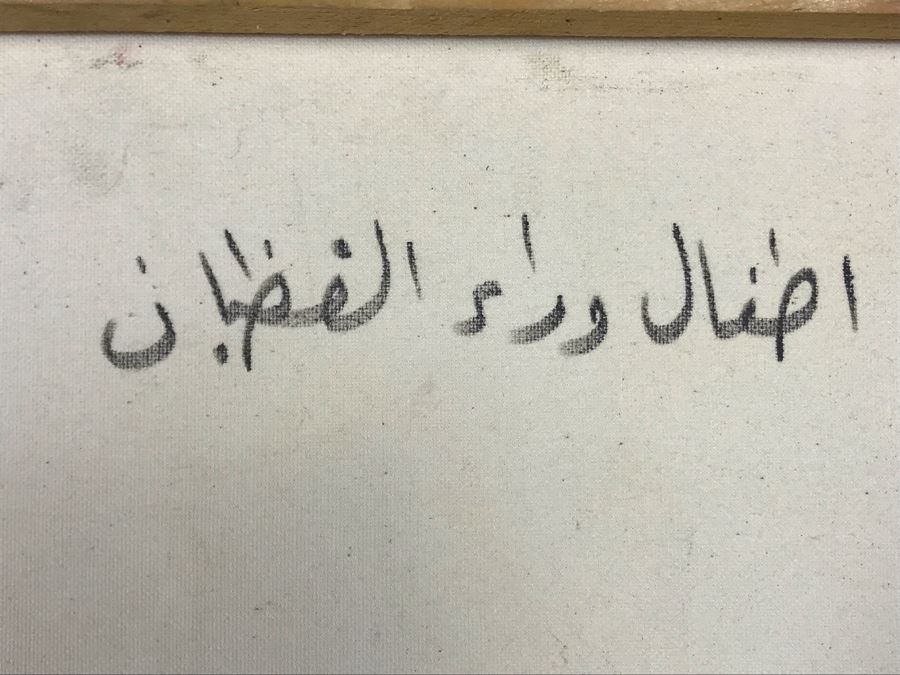 اطفال وراء القظبان